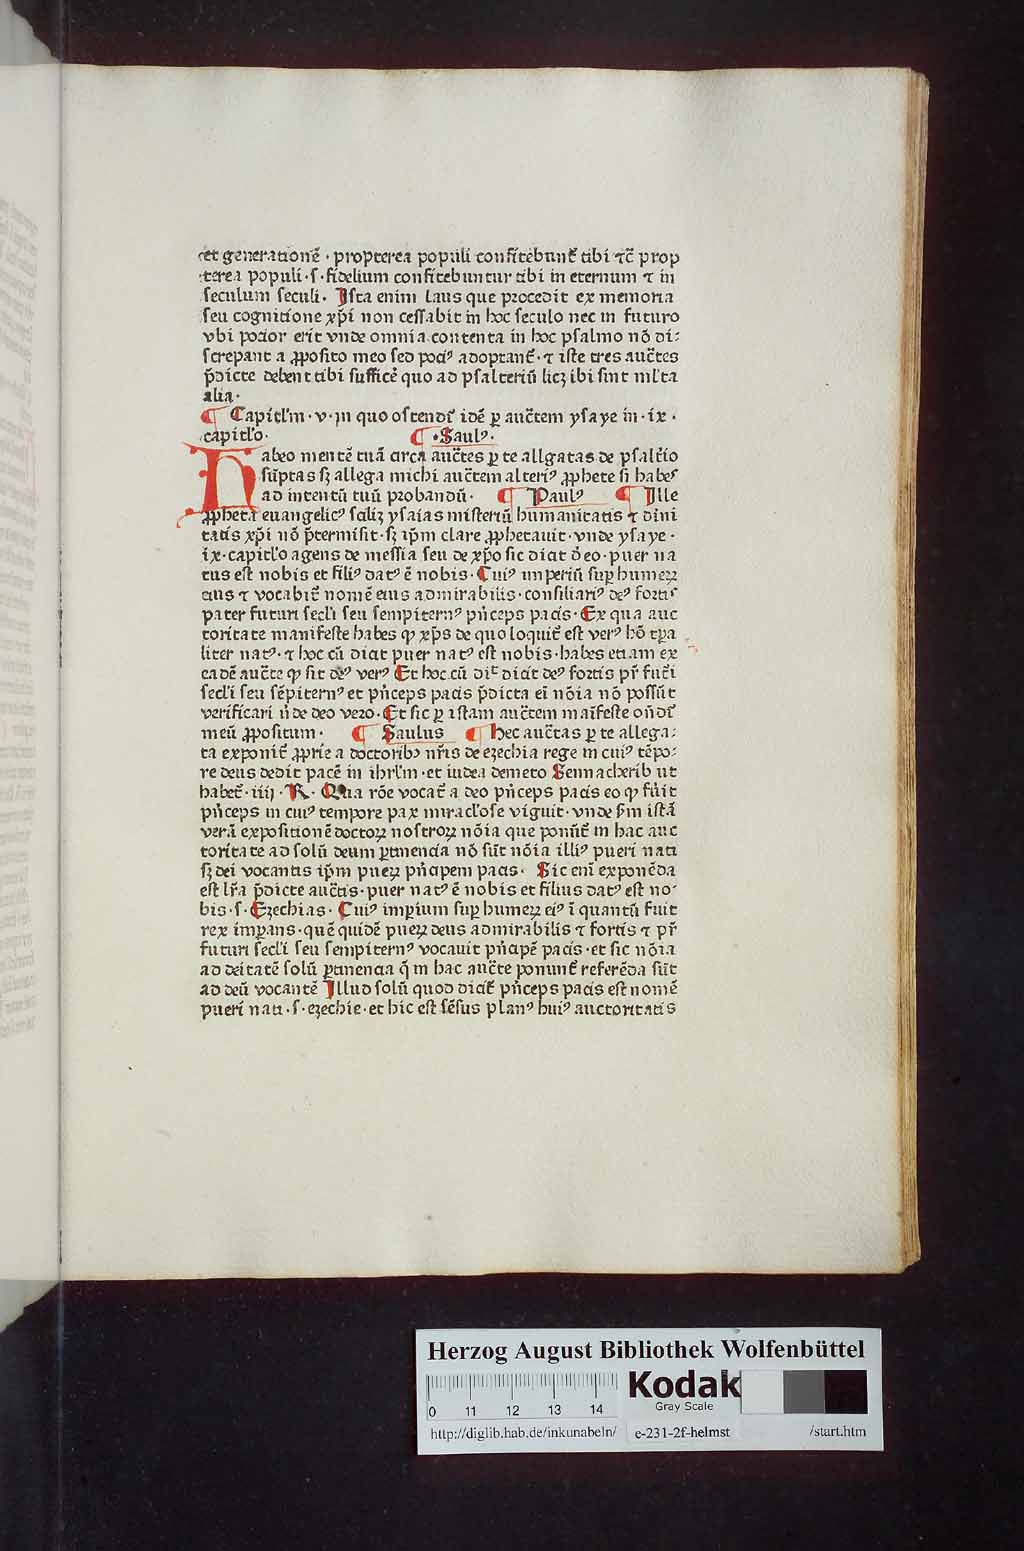 et generationē · propterea populi confitebunt᷑ tibi ⁊c̄ prop
terea populi · s · fidelium confitebuntur tibi in eternum ⁊ in
seculum seculi · Ista enim laus que procedit ex memoria
seu cognitione xp̄i non cessabit in hoc seculo nec in futuro
vbi pocior erit vnde omnia contenta in hoc psalmo nō di⸗
screpant a ꝓposito meo sed pociꝰ adoptant᷑ · ⁊ iste tres auc̄tes
p̄dicte debent tibi sufficē quo ad psalteriū licꝫ ibi sint ml̄ta
alia ·
¶ Capitl̓m · v · in quo ostendit᷑ idē ꝑ auc̄tem ysaye in · ix ·
capitl̓o · ¶ · Saulꝰ ·
Habeo mentē tuā circa auc̄tes ꝑ te allgatas de psalt̓io
sūptas sꝫ allega michi auc̄tem alteriꝰ ꝓphete si habes
ad intentū tuū probandū · ¶ Paulꝰ ¶ Ille
ꝓpheta euangelicꝰ scilꝫ ysaias misteriū humanitatis ⁊ diuini
tatis xp̄i nō p̄termisit · sꝫ ip̄m clare ꝓphetauit · vnde ysaye ·
ix · capitl̓o agens de messia seu de xp̄o sic dicit d̓ eo · puer na
tus est nobis et filiꝰ datꝰ ē nobis · Cuiꝰ imperiū suꝑ humeꝝ
eius ⁊ vocabit᷑ nomē eius admirabilis · consiliariꝰ deꝰ fortis
pater futuri secl̓i seu sempiternꝰ pn̓ceps pacis · Ex qua auc
toritate manifeste habes ꝙ xp̄s de quo loquit᷑ est verꝰ hō tp̄a
liter natꝰ · ⁊ hoc cū dicit puer natꝰ est nobis · habes etiam ex
eadē auc̄te ꝙ sit deꝰ verꝰ Et hoc cū dit᷑ dicit deꝰ fortis pr̄ fut̓i
secl̓i seu sēpiternꝰ et pn̓ceps pacis p̄dicta ei̅ nōia nō possūt
verificari n̓ de deo vero · Et sic ꝑ istam auc̄tem maīfeste on̄dit᷑
meū ꝓpositum · ¶ Saulus ¶ Hec auc̄tas ꝑ te allega⸗
ta exponit᷑ ꝓprie a doctoribꝰ nr̄is de ezechia rege in cuiꝰ tēpo⸗
re deus dedit pacē in ihrl̓m · et iudea demeto Sennacherib ut
habet᷑ · iiij · R · Qua rōe vocat᷑ a deo pn̓ceps pacis eo ꝙ fuit
pn̓ceps in cuiꝰ tempore pax miracl̓ose viguit · vnde sm̄ istā
verā expositionē doctoꝝ nostroꝝ nōia que ponūt᷑ in hac auc
toritate ad solū deum ꝑtinencia nō sūt nōia illiꝰ pueri nati
sꝫ dei vocantis ip̄m pueꝝ pn̓cipem pacis · Sic enī exponēda
est lr̄a p̄dicte auc̄tis · puer natꝰ ē nobis et filius datꝰ est no⸗
bis · s · Ezechias · Cuiꝰ imꝑium suꝑ humeꝝ eiꝰ ī quantū fuit
rex imꝑans · quē quidē pueꝝ deus admirabilis ⁊ fortis ⁊ pr̄
futuri secl̓i seu sempiternꝰ vocauit pn̓cipē pacis · et sic nōia
ad deitatē solū ꝑtinencia q̄ in hac auc̄te ponunt᷑ referēda sūt
ad deū vocantē Illud solū quod dicit᷑ pn̓ceps pacis est nomē
pueri nati · s · ezechie · et hic est sēsus planꝰ huiꝰ auctoritatis
Herzog August Bibliothek Wolfenbüttel
0 11 12 13 14
Kodak
Gray Scale
http://diglib.hab.de/inkunabeln/ e-231-2f-helmst /start.htm